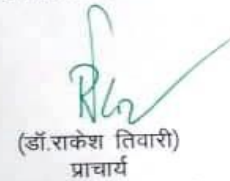 (डॉ.राकेश तिवारी)
प्राचार्य